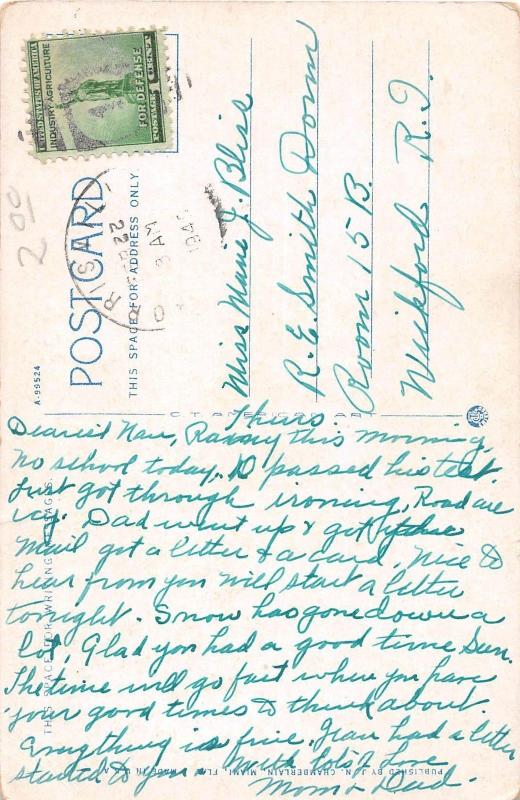 UNITED STATES OF AMERICA
INDUSTRY AGRICULTURE
FOR DEFENSE
POSTAGE 1 CENT
POSTCARD
THIS SPACE FOR ADDRESS ONLY
A-99524
2 00
22
3 AM
194
Miss Marie J. Bliss
R. E. Smith Dorm
Room 15 B.
Wickford R. I.
C.T. AMERICAN ART
Thurs.
Dearest Nan, Rainy this morning,
no school today. D passed his test.
Just got through ironing, Road are
icy. Dad went up & got the
mail got a letter & a card, Nice to
hear from you will start a letter
tonight. Snow has gone down a
lot, Glad you had a good time Sun.
The time will go fast when you have
your good times to think about.
Everything is fine. Jean had a letter
started to you. With lots of Love
Mom & Dad.
THIS SPACE FOR WRITING MESSAGES
PUBLISHED BY J. N. CHAMBERLAIN, MIAMI, FLA. MADE IN U.S.A.